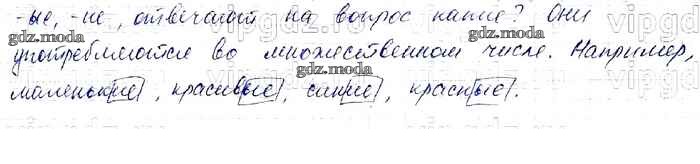 -ые, -ие, отвечают на вопрос какие? Они
употребляются во множественном числе. Например,
маленькие, красивые, синие, красные.
gdz.moda
gdz.moda
gdz.moda
gdz.moda
gdz.moda
vipgdz
vipgdz